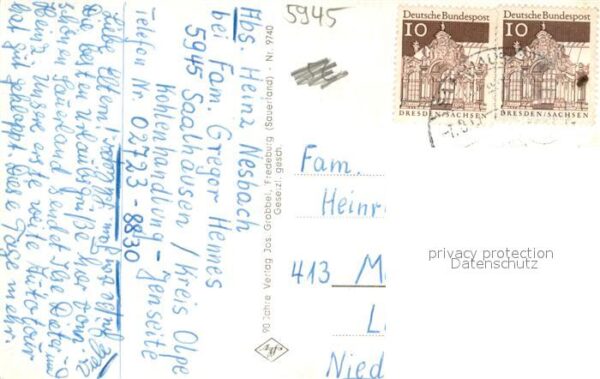 5945
Deutsche Bundespost
10
DRESDEN/SACHSEN
Deutsche Bundespost
10
DRESDEN/SACHSEN
Abs. Heinz Nesbach
bei Fam Gregor Hennes
5945 Saalhausen / Kreis Olpe
Kohlenhandlung - Jenseite
Telefon Nr. 02723-8830
Liebe Eltern!
Die besten Urlaubsgrüße hier vom
schönen Sauerland sendet Ihre Dieter und
Heinz. Unsere erste weite Autotour
hat gut geklappt. Diese Tage mehr.
90 Jahre Verlag Jos. Grobbel, Fredeburg (Sauerland) - Nr. 9740
Gesetzl. gesch.
Fam.
Heinr
413 M
L
Nied
privacy protection
Datenschutz